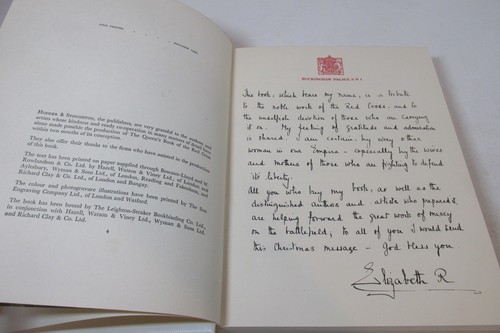 HODDER & STOUGHTON, the publishers, are very grateful to the authors and
artists whose kindness and ready co-operation in many matters of detail
alone made possible the production of The Queen's Book of the Red Cross
within two months of its conception.
They also offer their thanks to the firms who have assisted in the production
of this book.
The text has been printed on paper supplied through Bowater-Lloyd and by
Rowlandson & Co. Ltd. by Hazell, Watson & Viney Ltd., of London and
Aylesbury, Wyman & Sons Ltd., of London, Reading and Fakenham, and
Richard Clay & Co. Ltd., of London and Bungay.
The colour and photogravure illustrations have been printed by The Sun
Engraving Company Ltd., of London and Watford.
The book has been bound by The Leighton-Straker Bookbinding Co. Ltd.
in conjunction with Hazell, Watson & Viney Ltd., Wyman & Sons Ltd.
and Richard Clay & Co. Ltd.
4
BUCKINGHAM PALACE, S.W.1.
This book, which bears my name, is a tribute
to the noble work of the Red Cross, and to
the unselfish devotion of those who are carrying
it on. My feeling of gratitude and admiration
is shared, I am certain, by every other
woman in our Empire - especially by the wives
and mothers of those who are fighting to defend
its liberty.
All you who buy my book, as well as the
distinguished authors and artists who prepared it,
are helping forward the great work of mercy
on the battlefield; to all of you I would send
this Christmas message - God bless you
Elizabeth R